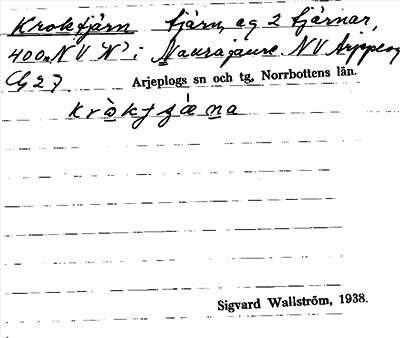 Kroktjärn tjärn, eg 2 tjärnar,
400m N V i Maurajaure. NV Arjeplog
Arjeplogs sn och tg, Norrbottens län.
Sigvard Wallström, 1938.